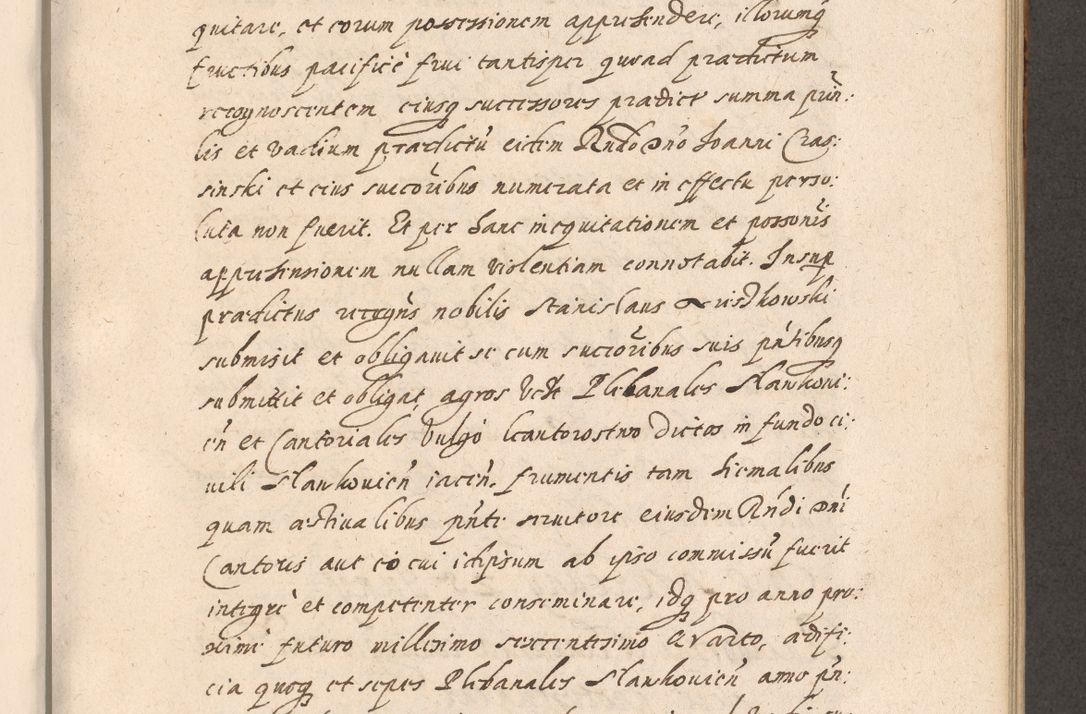 quitare, et eorum possessionem apprehendere, illorumq
fructibus pacificè frui tantisper quoad praedictum
recognoscentem eiusq successores praedicte summa prin:
lis et vadium praedictũ eidem Rndo Dno Joanni Cras:
sinski et eius succoribus numerata et in effectu perso:
luta non fuerit. Et per hanc inequitationem et possonis
apprehensionem nullam violentiam connotabit. Insup
praedictus recogns nobilis Stanislaus
submisit et obligavit se cum succoribus suis pntibusq
submittit et obligat agros Plebanales Slawkovi:
en et Cantoriales vulgo kantorostwo dictos in fundo ci:
vili Slawkovien iacen. frumentis tam hiemalibus
quam aestivalibus pnte servitore eiusdem Rndi Dni
Cantoris aut eò cui idipsum ab ipso commissũ fuerit
integrè et competenter conseminare, idq pro anno pro:
ximè futuro millesimo sexcentesimo Qvarto, aedifi:
cia quoq et sepes Plebanales Slawkovien anno pn: